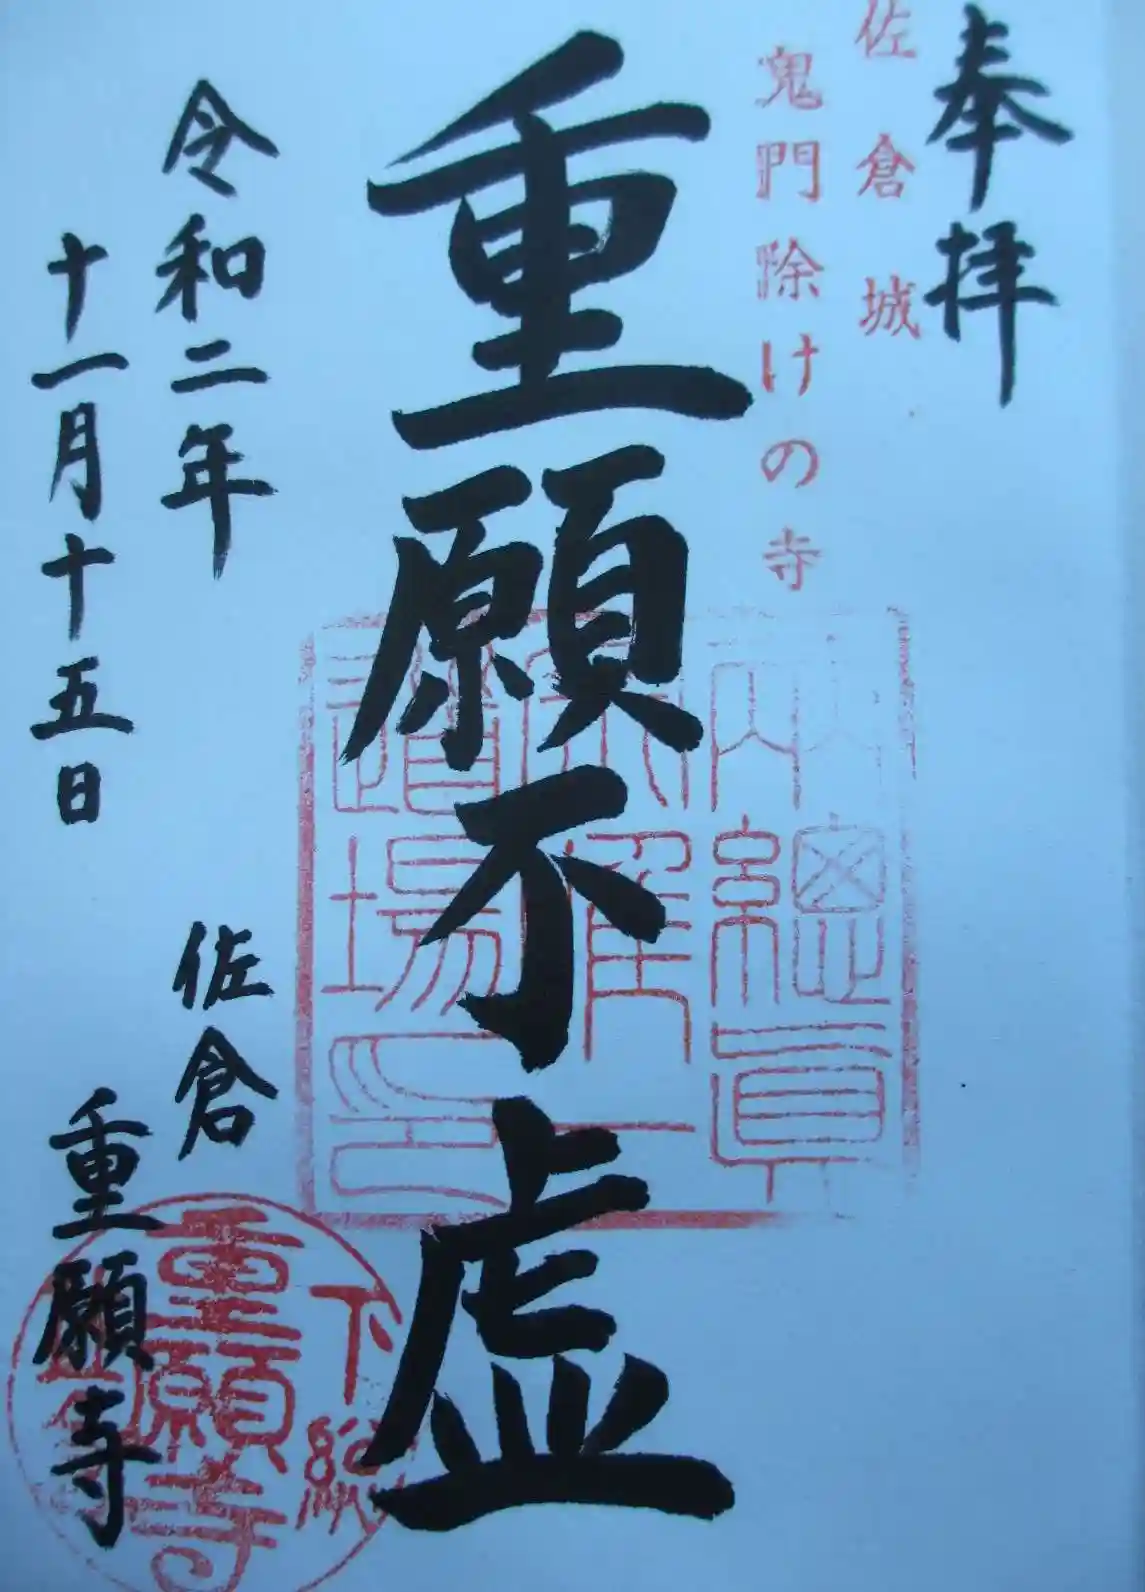 奉拝
佐倉城
鬼門除けの寺
重願不虚
令和二年
十一月十五日
佐倉
重願寺
下總
重願寺